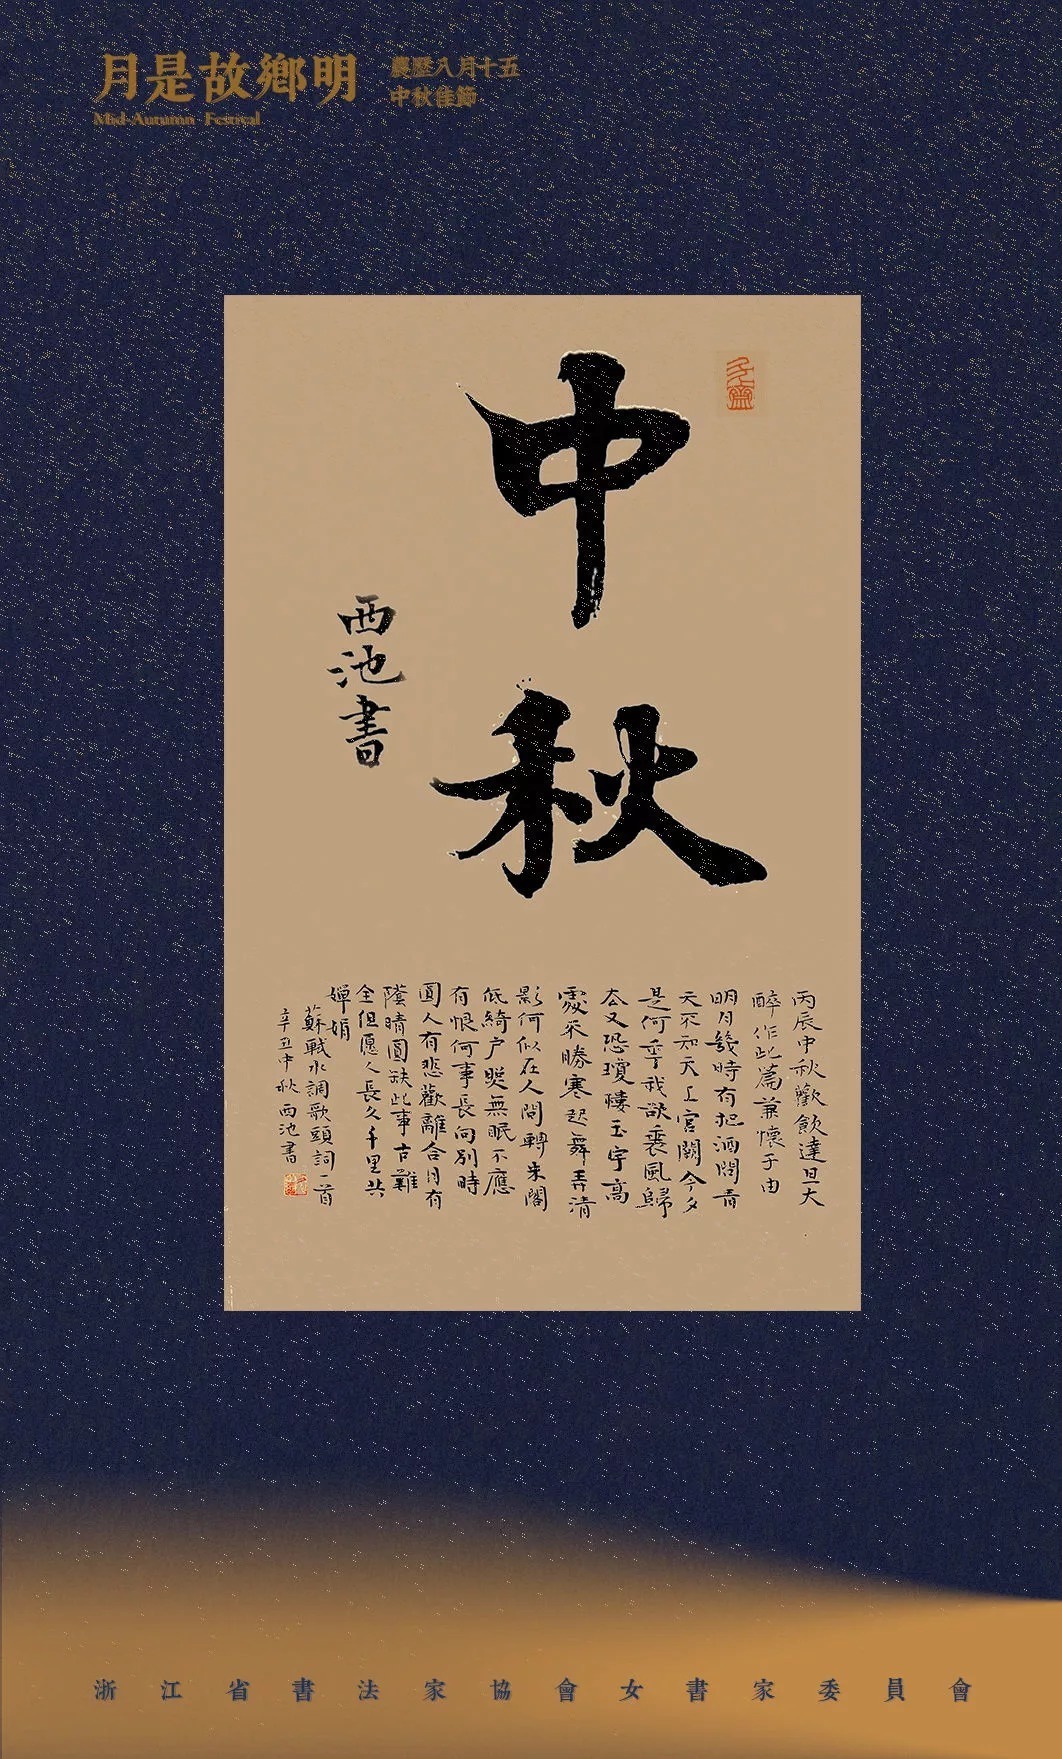 月是故鄉明
Mid-Autumn Festival
農歷八月十五
中秋佳節
中秋
西池書
丙辰中秋歡飲達旦大
醉作此篇兼懷子由
明月幾時有把酒問青
天不知天上宮闕今夕
是何年我欲乘風歸
去又恐瓊樓玉宇高
處不勝寒起舞弄清
影何似在人間轉朱閣
低綺户照無眠不應
有恨何事長向別時
圓人有悲歡離合月有
陰晴圓缺此事古難
全但愿人長久千里共
嬋娟
蘇軾水調歌頭詞一首
辛丑中秋西池書
浙江省書法家協會女書家委員會